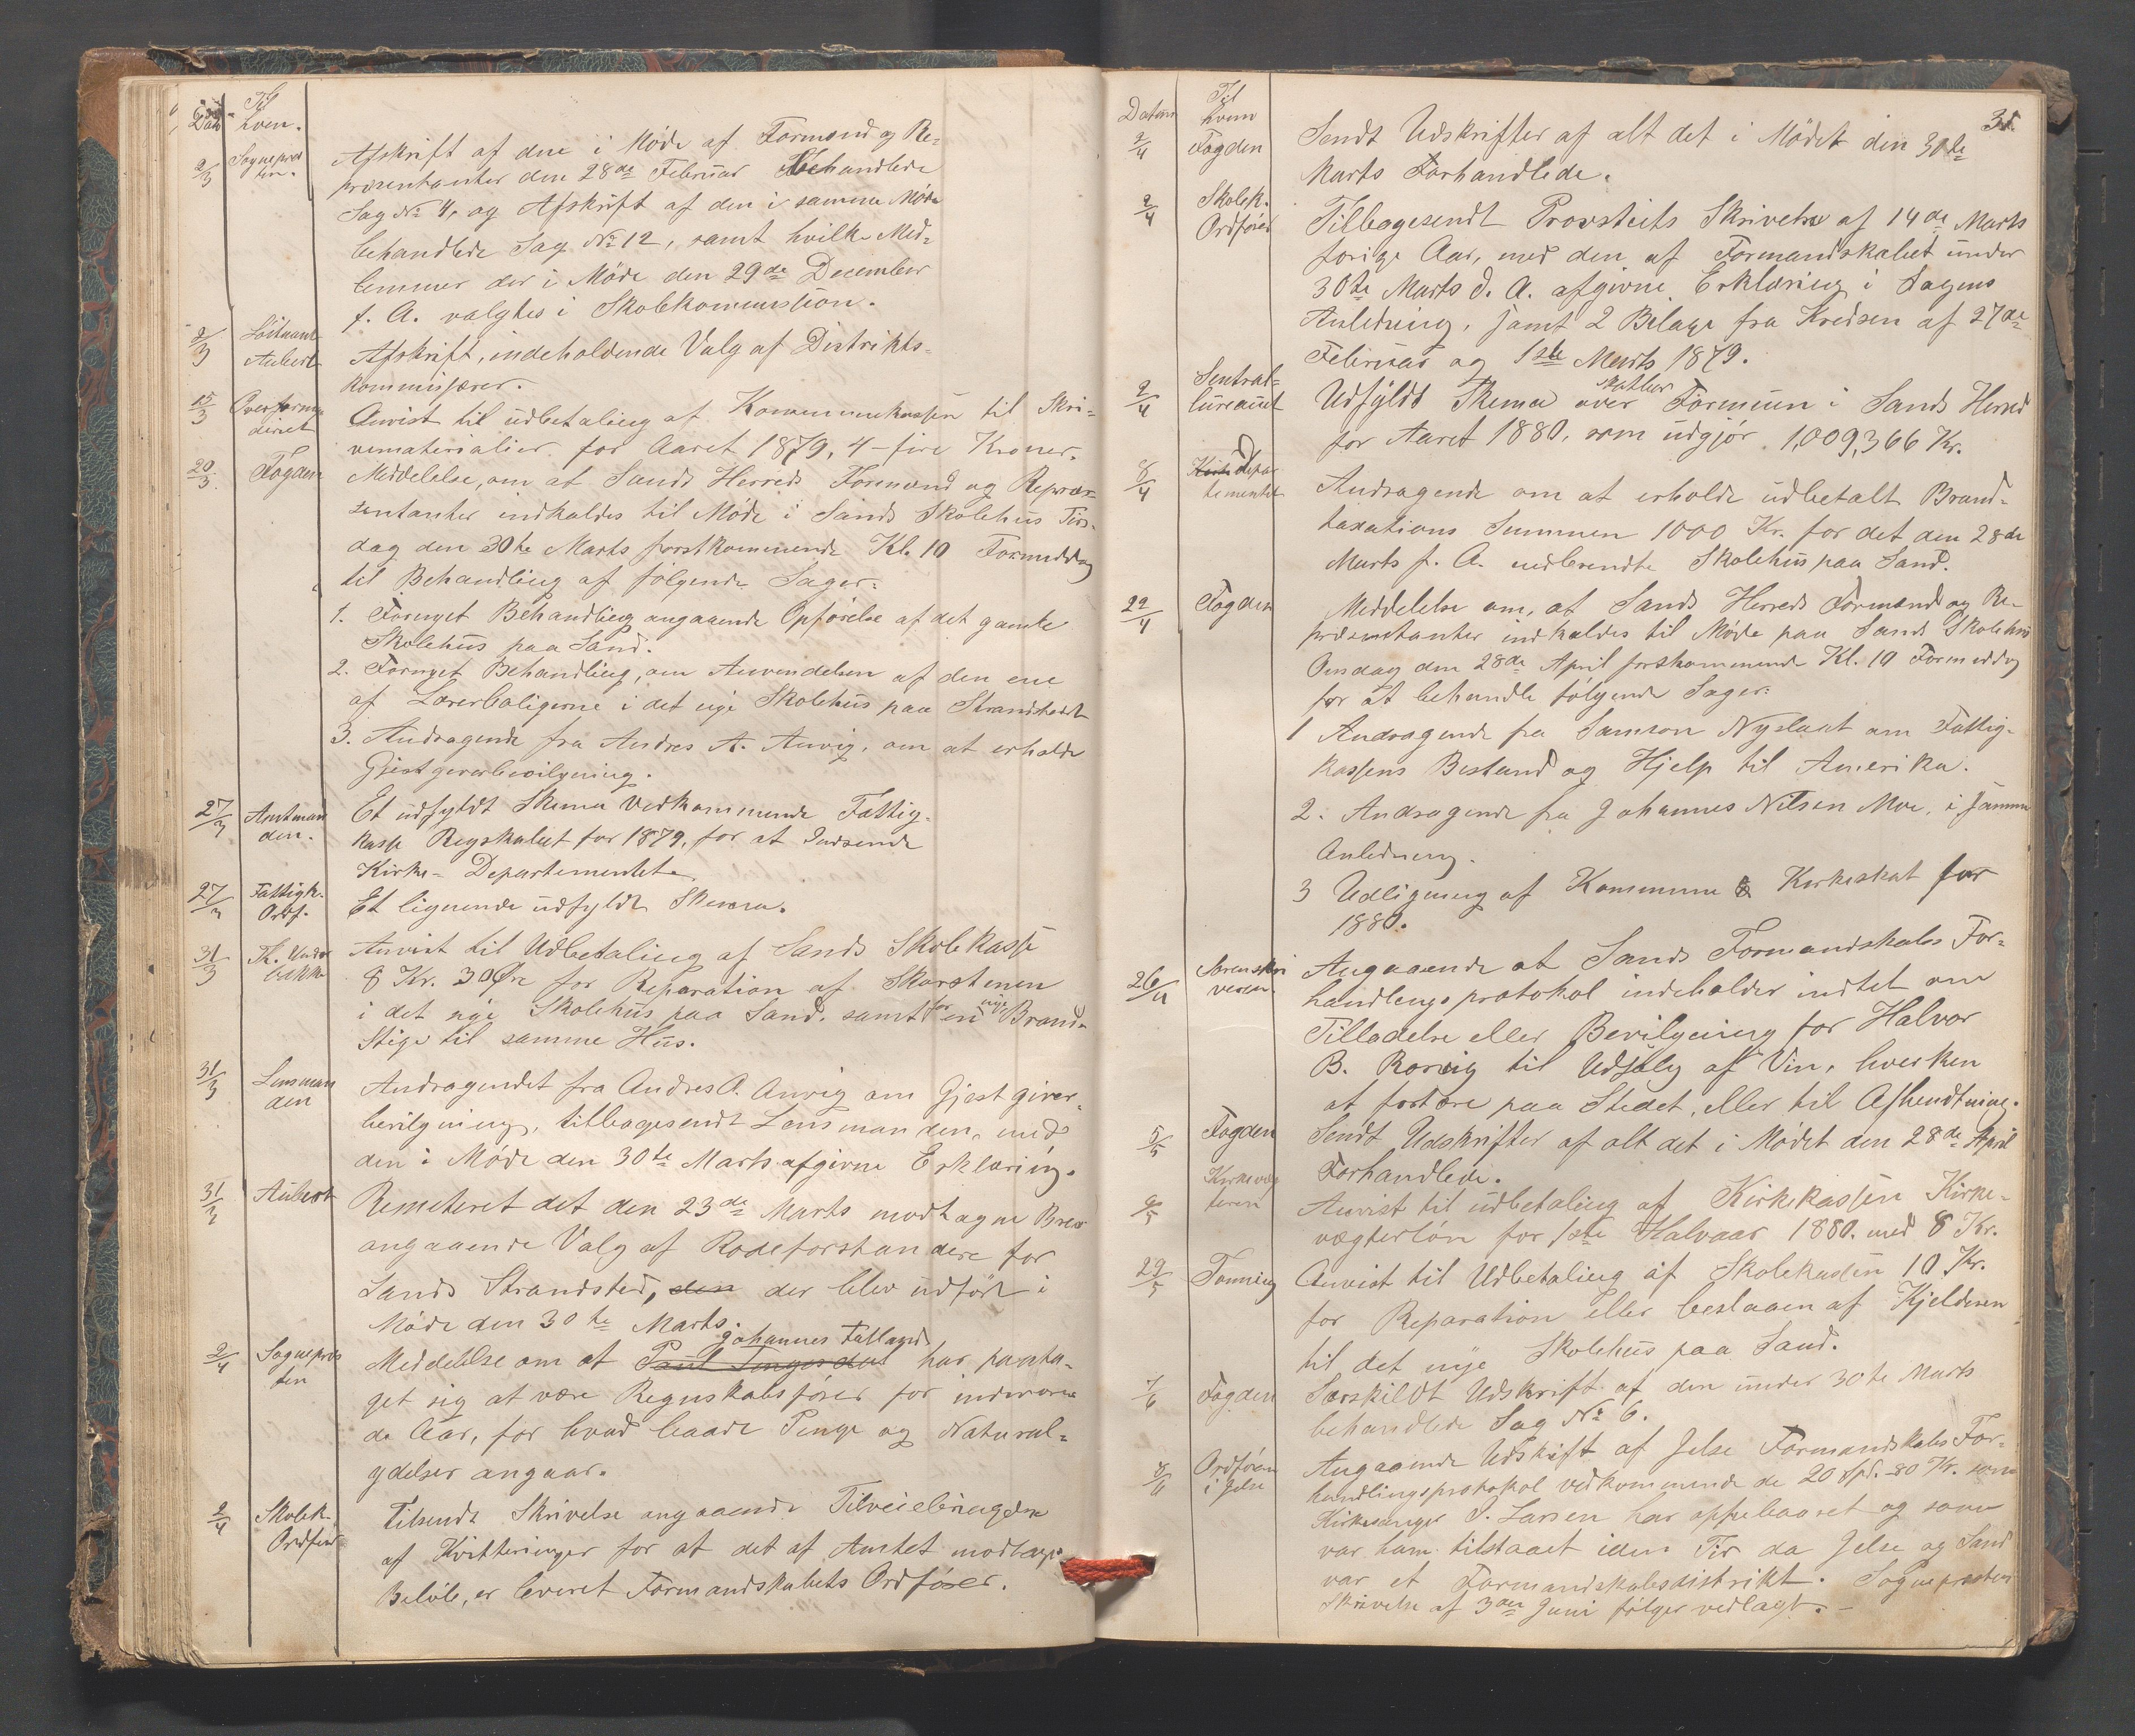 Dato Til
hven.
2/3 Sognepres
ten. Afskrift af den i Møde af Formænd og Re-
præsentanter den 28de Februar behandlede
Sag No 4, og Afskrift af den i samme Møde
behandlede Sag No 12, samt hvilke Med-
lemmer der i Møde den 29de December
f. A. valgtes i Skolekommission.
2/3 Löitnant
Aubert Afskrift, indeholdende Valg af Distrikts-
kommissærer.
15/3 Overforma
deriet Anvist til udbetaling af Kommunekassen til Skri-
vematerialier for Aaret 1879, 4 - fire Kroner.
20/3 Fogden Meddelelse, om at Sands Herreds Formænd og Repræ-
sentanter indkaldes til Møde i Sands Skolehus Tirs-
dag den 30te Marts førstkommende Kl. 10 Formiddag
til Behandling af følgende Sager:
1. Fornyet Behandling angaaende Opførelse af det gamle
Skolehus paa Sand.
2. Fornyet Behandling, om Anvendelsen af den ene
af Lærerboligerne i det nye Skolehus paa Strandstedet
3. Andragende fra Andres A. Anvig, om at erholde
Gjestgiverbevilgning.
27/3 Amtman
den. Et udfyldt Skema vedkommende Fattig-
kasse Regskabet for 1879, for at Indsende
Kirke-Departementet.
27/3 Fattigk.
Ordf. Et lignende udfyldt Skema.
31/3 Th. Under
bakke Anvist til Udbetaling af Sands Skolekasse
8 Kr. 30 Øre for Reparation af Skorstenen
i det nye Skolehus paa Sand. samt for en nye Brand-
Stige til samme Hus.
31/3 Lensman
den Andragendet fra Andres A. Anvig om Gjestgiver-
bevilgning, tilbagesendt Lensmanden, med
den i Møde den 30te Marts afgivne Erklæring.
31/3 Aubert Remeteret det den 23de Marts modtagne Brev
angaaende Valg af Rodeforstandere for
Sands Strandsted, den der blev udført i
Møde den 30te Marts.
2/4 Sognepres
ten Meddelelse om at Johannes Fatland har paata-
get sig at være Regnskabsfører for indeværen
de Aar, for hvad baade Penge og Natural-
ydelser angaar.
2/4 Skolek.
Ordfører Tilsendt Skrivelse angaaende Tilveiebringelse
af Kvitteringer for at det af Amtet modtagne
Beløb, er leveret Formandskabets Ordfører.
31.
Datum Til
hvem
2/4 Fogden Sendt Udskrifter af alt det i Mødet den 30te
Marts Forhandlede.
2/4 Skolek.
Ordfører Tilbagesendt Provstiets Skrivelse af 14de Marts
forige Aar, med den af Formandskabet under
30te Marts d. A. afgivne Erklæring i Sagens
Anledning, samt 2 Bilage fra Kredsen af 27de
Februar og 1ste Marts 1879.
2/4 Sentral-
bureauet Udfyldt Skema over skatbar Formuen i Sands Herred
for Aaret 1880, som udgjør 1,009,366 Kr.
8/4 Kirke depar
tementet Andragende om at erholde udbetalt Brand-
taxations Summen 1000 Kr. for det den 28de
Marts f. A. nedbrendte Skolehus paa Sand.
22/4 Fogden Meddelelse om, at Sands Herreds Formænd og Re-
præsentanter indkaldes til Møde paa Sands Skolehus
Onsdag den 28de April førstkommende Kl. 10 Formiddag
for at behandle følgende Sager:
1 Andragende fra Samson Nyslaat om Fattig-
kassens Bistand og Hjelp til Amerika.
2. Andragende fra Johannes Nilsen Moe, i samme
Anledning.
3 Udligning af Kommune & Kirkeskat for
1880.
26/4 Sorenskri
veren. Angaaende at Sands Formandskabs For-
handlingsprotokol indeholder indtet om
Tilladelse eller Bevilgning for Halvor
B. Rorvig til Udsalg af Vin, hverken
at fortære paa Stedet, eller til Afhendtning.
5/5 Fogden Sendt Udskrifter af alt det i Mødet den 28de April
Forhandlede.
9/5 Kirkevæg
teren Anvist til udbetaling af Kirkekassen Kirke-
vægterløn for 1ste Halvaar 1880. med 8 Kr.
29/5 Tonning Anvist til Udbetaling af Skolekassen 10 Kr.
for Reparation eller beslaaen af Kjelderen
til det nye Skolehus paa Sand.
7/6 Fogden Særskildt Udskrift af den under 30te Marts
behandlede Sag No 6.
8/6 Ordføren
i Jelse Angaaende Udskrift af Jelse Formandskabs For-
handlingsprotokol vedkommende de 20 Spd. - 80 Kr. som
Kirkesanger S. Larsen har oppebaaret og som
var ham tilstaaet iden Tid da Jelse og Sand
var et Formandskabsdistrikt. Sognepresten
Skrivelse af 3die Juni følger vedlagt. -